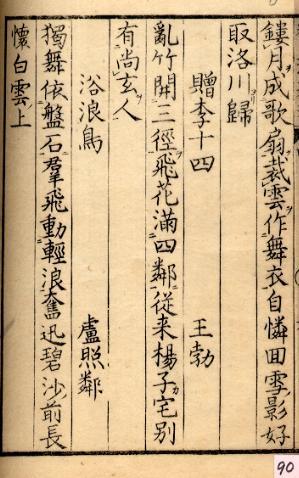 鏤月成歌扇裁雲作舞衣自憐囬雪影好
取洛川歸
贈李十四 王勃
亂竹開三徑飛花滿四鄰従来楊子宅别
有尚玄人
浴浪鳥 盧照鄰
獨舞依盤石羣飛動輕浪奮迅碧沙前長
懷白雲上
90